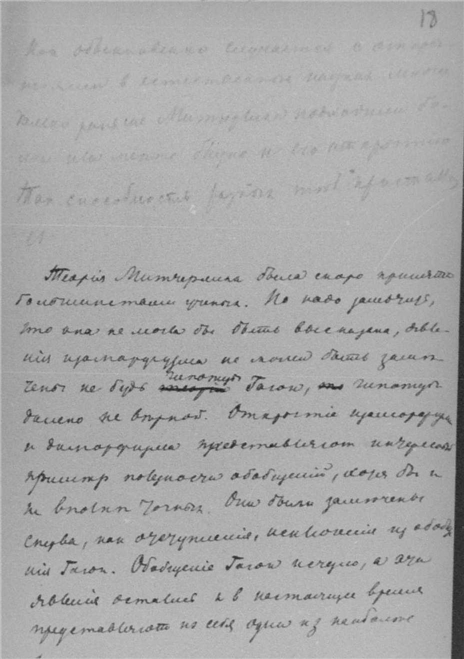 18
Как обыкновенно случается с откры-
тиями в естественных науках многие
раньше Митчерлиха подходили бо-
лее или менее близко к его открытию
Так способность разных тел кристалли
Теорія Митчерлиха была скоро принята
большинством ученых. Но надо заметить,
что она не могла бы быть высказана, явле-
нія изоморфизма не могли быть заме-
чены не будь гипотезы Гаюи, гипотезы
далеко не верной. Открытіе изоморфизма
и диморфизма представляют интересный
пример полезности обобщений, хотя бы и
не вполне точных. Они были замечены
сперва, как отступленія, исключенія из обобще
нія Гаюи. Обобщеніе Гаюи исчезло, а эти
явленія остались и в настоящее время
представляют из себя одни из наиболее